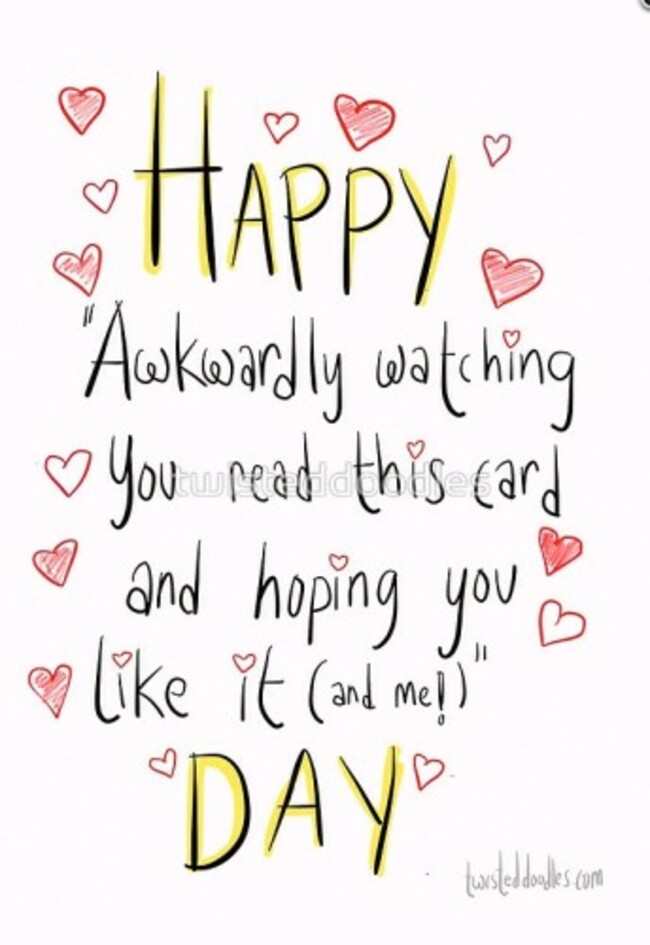 HAPPY
"Awkwardly watching
you read this card
twisteddoodles
and hoping you
like it (and me!)"
DAY
twisteddoodles.com